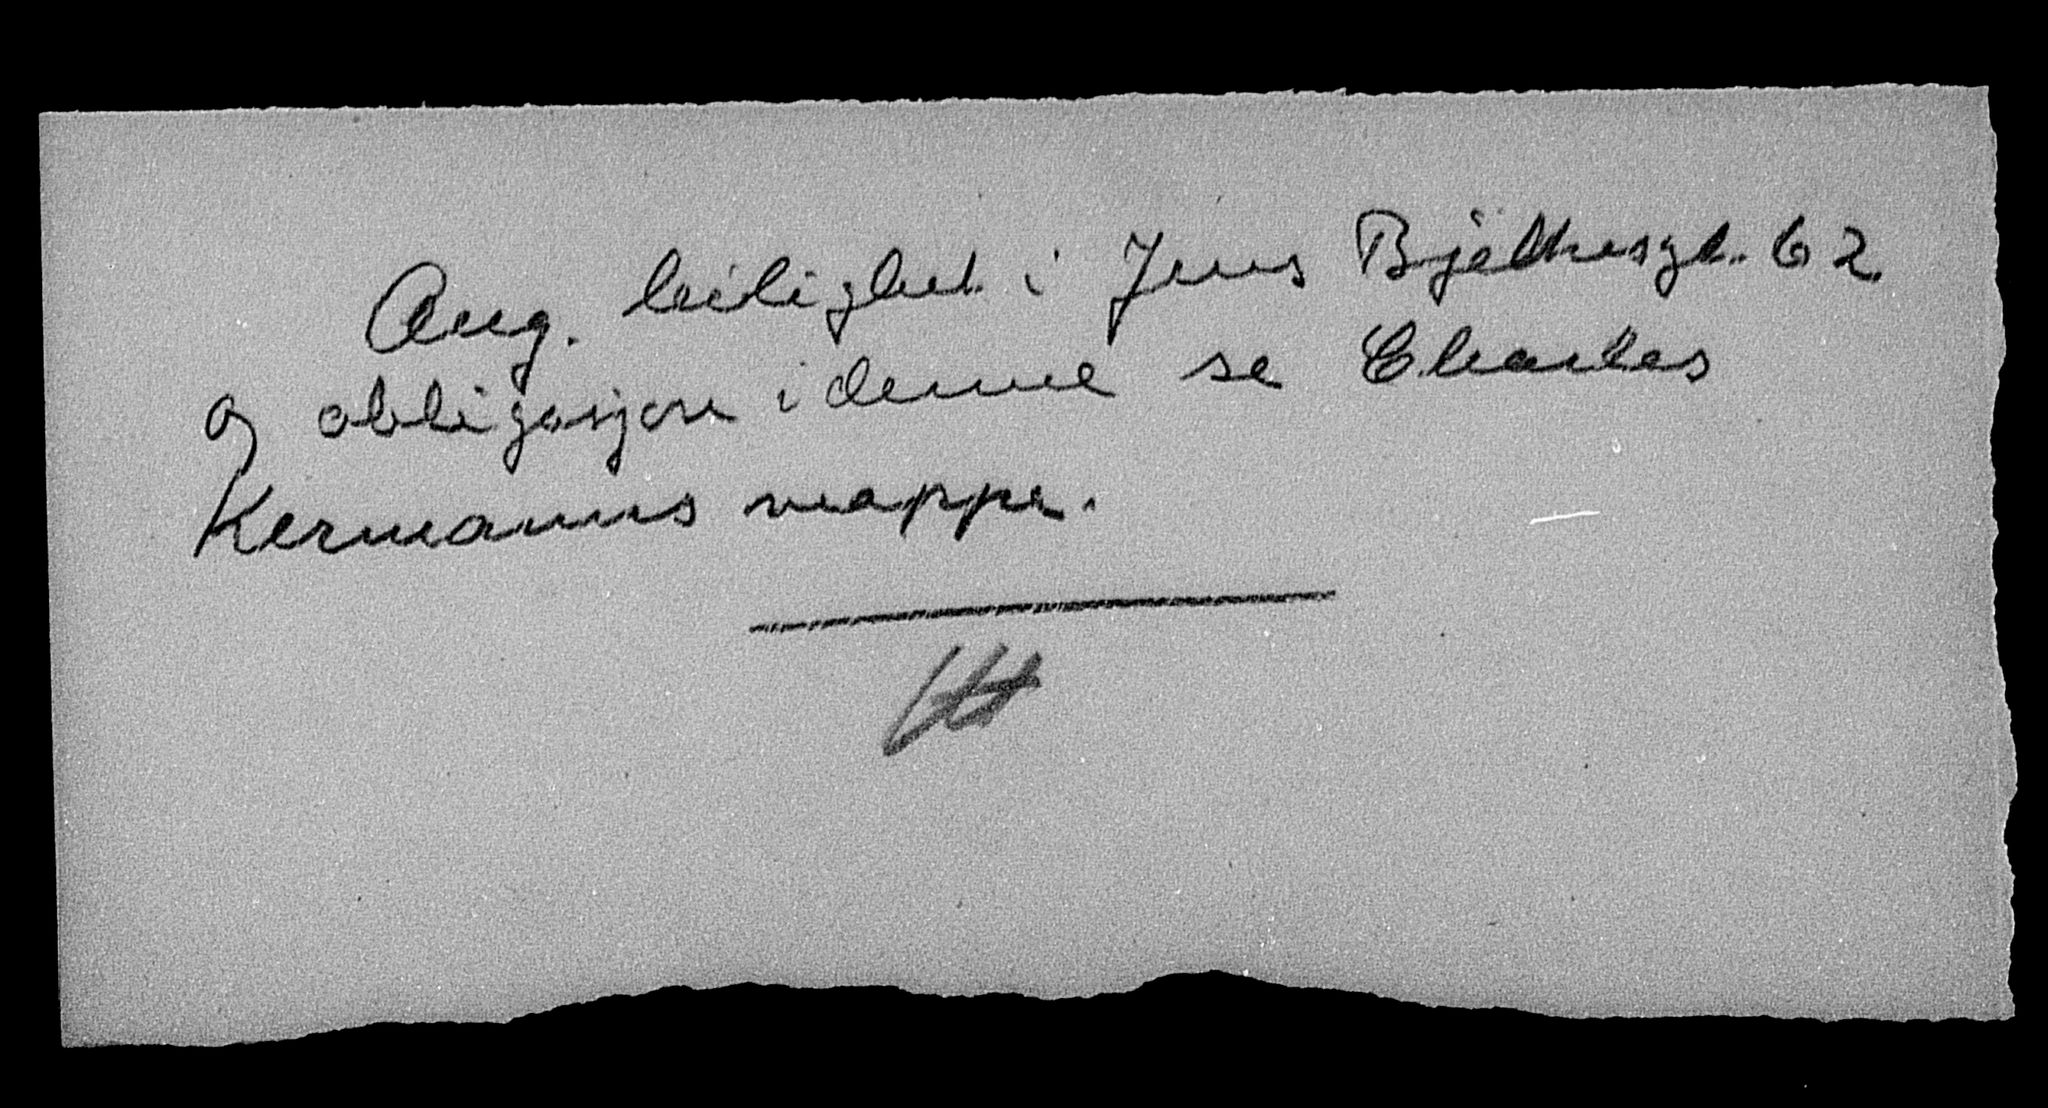 Ang. leilighet i Jens Bjelkesgt. 62
og obligasjon i denne se Charles
Kermanns mappe.